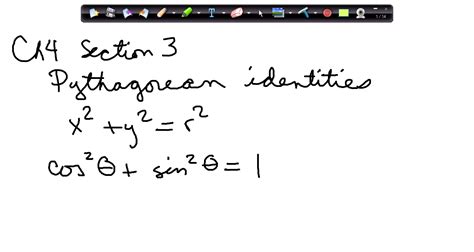 Ch4 Section 3
Pythagorean identities
x² + y² = r²
cos² θ + sin² θ = 1